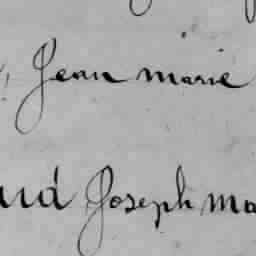 Jean marie
aud Joseph ma